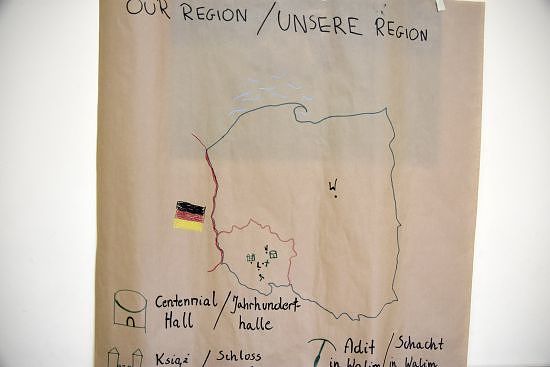 OUR REGION / UNSERE REGION
W
Centennial / Jahrhundert-
Hall halle
Adit / Schacht
in Walim / in Walim
Książ / Schloss